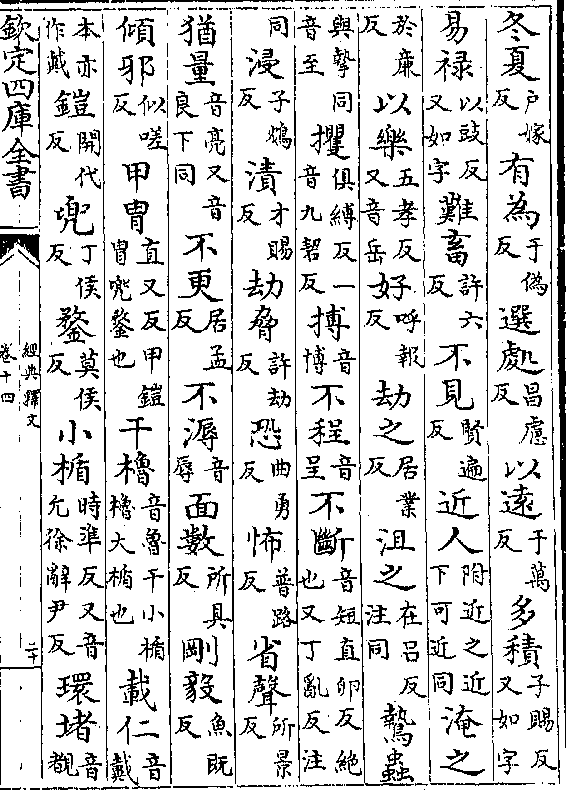 冬夏戶嫁反有為于偽反選處昌慮反以遠于萬反多積子賜反又如字
易祿以豉反又如字難畜許六反不見賢遍反近人附近之近下可近同淹之
於廉反以樂五孝反又音岳好呼報反劫之居業反沮之在呂反注同鷙蟲
與摯同音至攫俱縛反一音九碧反搏音博不程音呈不斷音短直卯反絕也又丁亂反注
同浸子鴆反漬才賜反劫脅許劫反恐曲勇反怖普路反省聲所景反
猶量音亮又音良下同不更居孟反不溽音辱面數所具反剛毅魚既反
傾邪似嗟反甲冑直又反甲鎧冑兜鍪也干櫓音魯干小楯櫓大楯也載仁音戴
本亦作戴鎧開代反兜丁侯反鍪莫侯反小楯時準反又音允徐辭尹反環堵音覩
欽定四庫全書
經典釋文
卷十四
二十